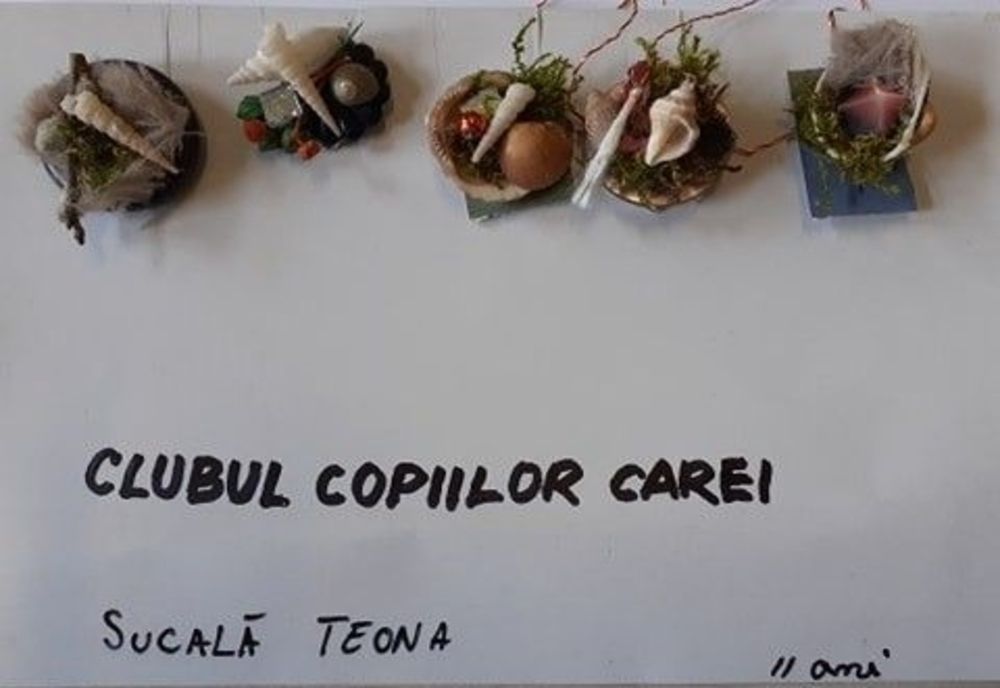 CLUBUL COPIILOR CAREI
SUCALĂ TEONA
11 ani